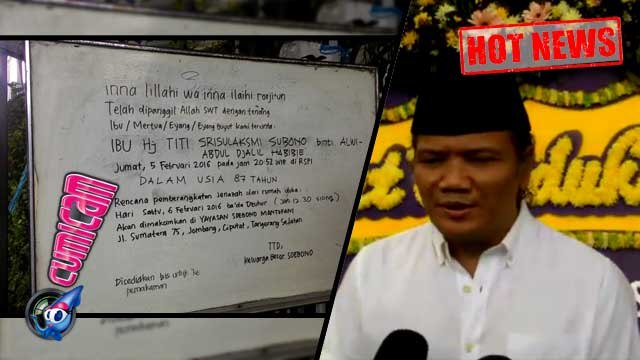 inna lillahi wa inna ilaihi roojiun
Telah dipanggil Allah SWT dengan tenang
Ibu / Mertua / Eyang / Eyang buyut kami tercinta :
IBU Hj TITI SRISULAKSMI SUBONO binti ALWI-
ABDUL DJALIL HABIBIE
Jumat, 5 Februari 2016 pada jam 20:52 WIB di RSPI
DALAM USIA 87 TAHUN
Rencana pemberangkatan Jenazah dari rumah duka :
Hari Sabtu, 6 Februari 2016 ba'da Dzuhur (Jam 12.30 siang)
Akan dimakamkan di YAYASAN SOEBONO MANTOFANI
Jl. Sumatera 75, Jombang, Ciputat, Tangerang Selatan
TTD,
Keluarga Besar SOEBONO
Disediakan bis untuk ke
pemakaman
cumicam
HOT NEWS